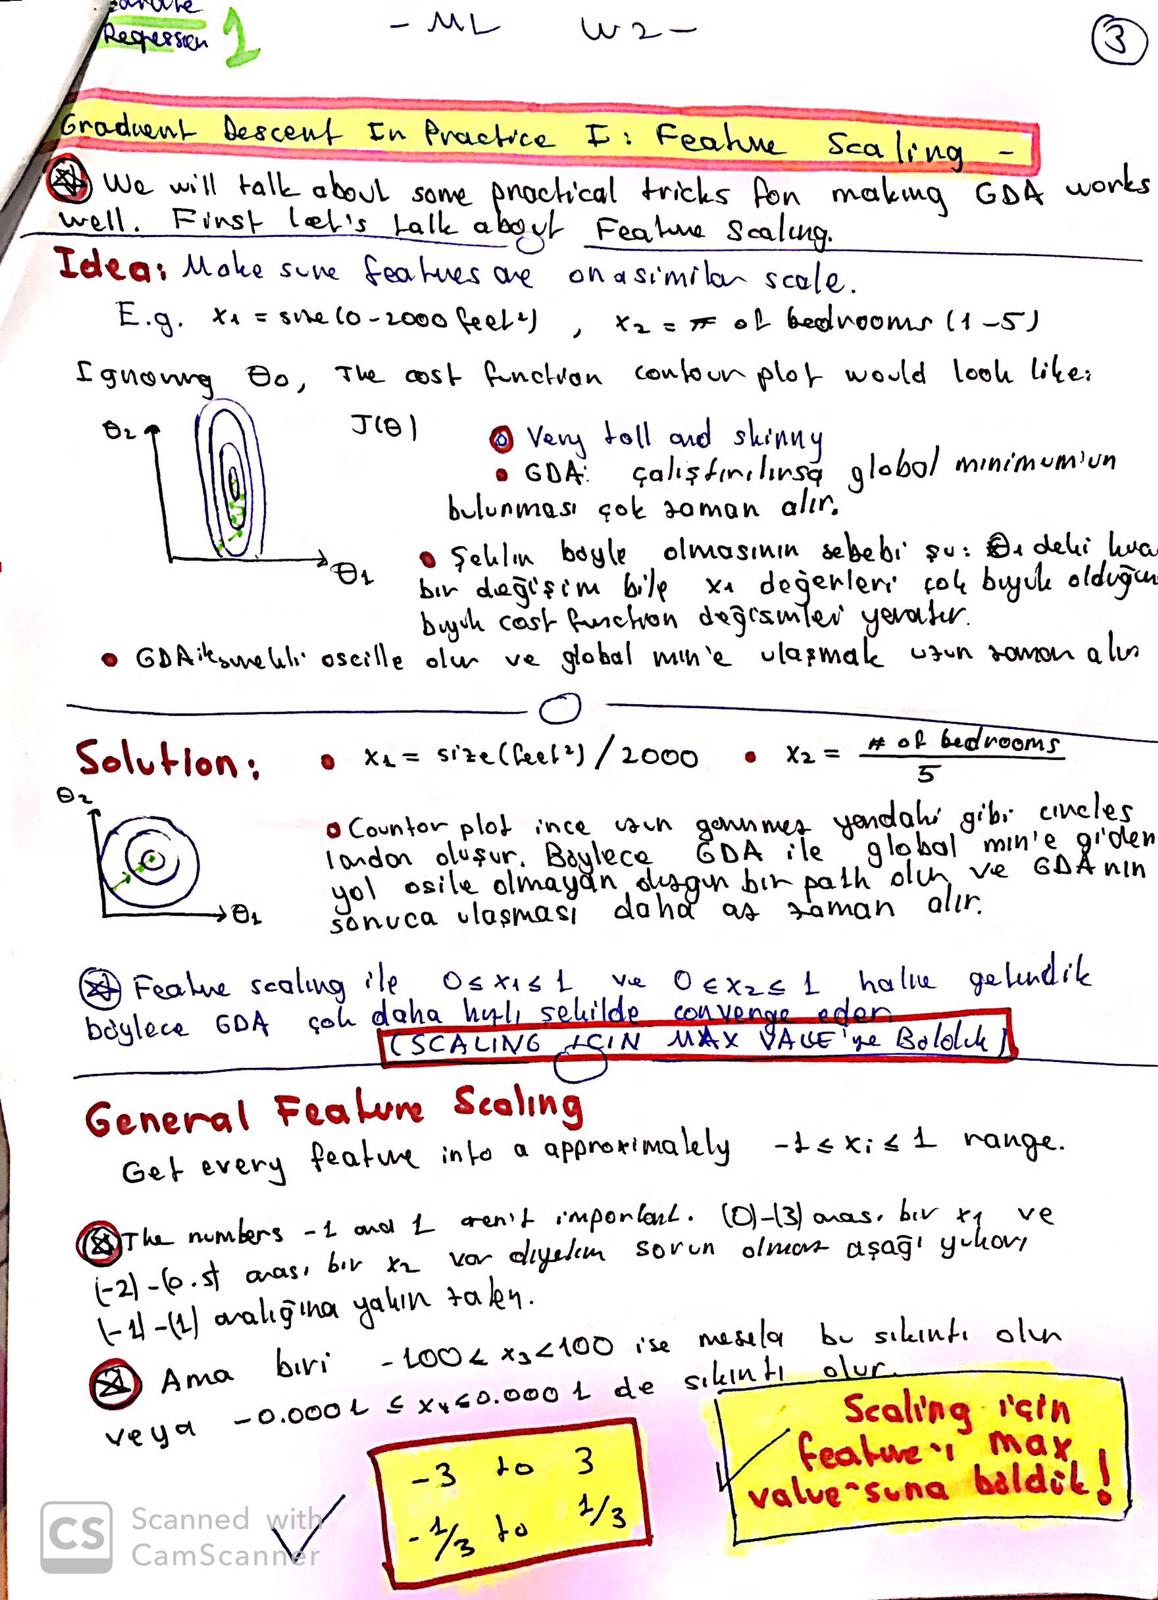 Regression 1
- ML W2 -
3
Graduent Descent In Practice I: Feature Scaling -
We will talk about some practical tricks for making GDA works
well. First let's talk about Feature Scaling.
Idea: Make sure features are on a similar scale.
E.g. x₁ = size (0-2000 feet²) , x₂ = # of bedrooms (1-5)
Ignoring θ₀, The cost function contour plot would look like:
θ₂
J(θ)
Very tall and skinny
GDA: çalıştırılırsa global minimum'un
bulunması çok zaman alır.
θ₁
Şeklin böyle olmasının sebebi şu: θ₁ deki
bir değişim bile x₁ değerleri çok büyük
büyük cost function değişimleri yaratır.
GDA sürekli oscille olur ve global min'e ulaşmak uzun zaman alır
Solution: x₁ = size (feet²) / 2000 x₂ = # of bedrooms / 5
θ₂
Countor plot ince uzun görünmez yandaki gibi circles
lardan oluşur. Böylece GDA ile global min'e giden
yol osile olmayan düzgün bir path olur ve GDA nın
sonuca ulaşması daha az zaman alır.
θ₁
Feature scaling ile 0 ≤ x₁ ≤ 1 ve 0 ≤ x₂ ≤ 1 haline getirdik
böylece GDA çok daha hızlı şekilde converge eder
(SCALING İÇİN MAX VALUE'ye Böldük)
General Feature Scaling
Get every feature into a approximately -1 ≤ xᵢ ≤ 1 range.
The numbers -1 and 1 aren't important. (0)-(3) arası bir x₁ ve
(-2)-(0.5) arası bir x₂ var diyelim sorun olmaz aşağı yukarı
(-1)-(1) aralığına yakın zaten.
Ama biri -100 < x₃ < 100 ise mesela bu sıkıntı olur
veya -0.0001 ≤ x₄ ≤ 0.0001 de sıkıntı olur.
-3 to 3
-1/3 to 1/3
Scaling için
feature'ı max
value-suna böldük!
CS Scanned with
CamScanner